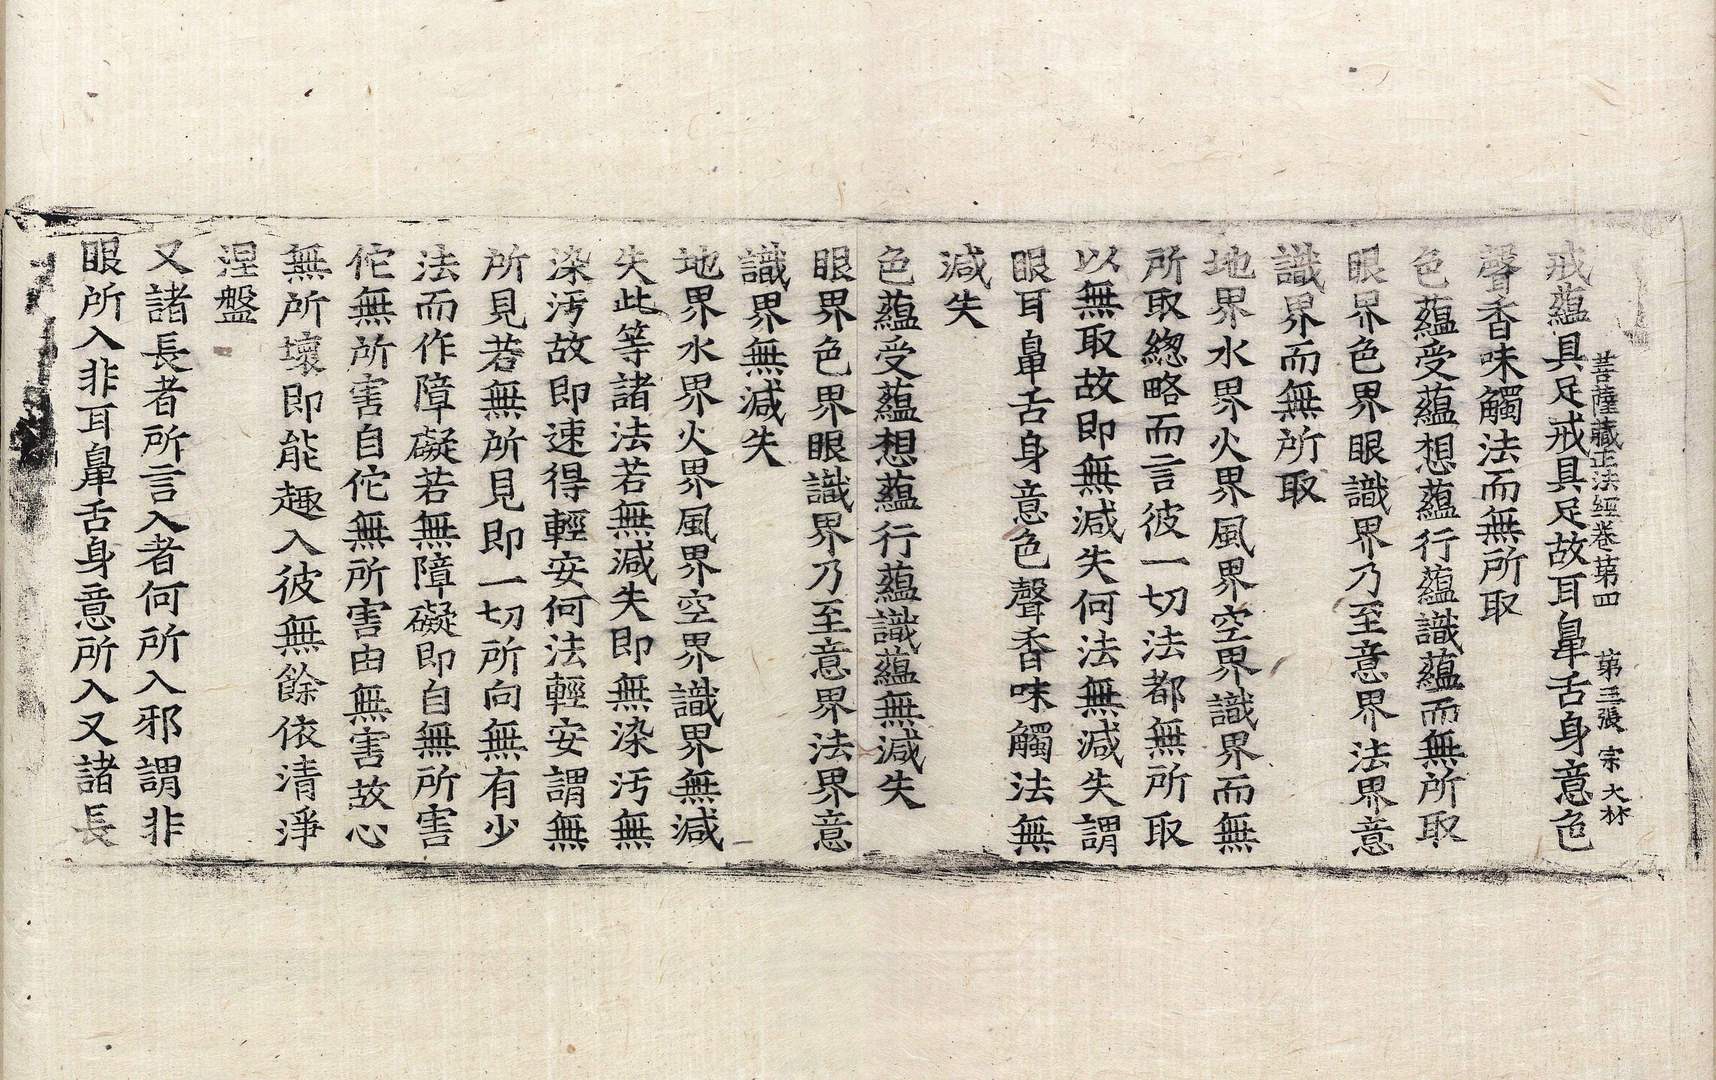 菩薩藏正法經卷第四 第三張 宗 大林
戒蘊具足戒具足故耳鼻舌身意色
聲香味觸法而無所取
色蘊受蘊想蘊行蘊識蘊而無所取
眼界色界眼識界乃至意界法界意
識界而無所取
地界水界火界風界空界識界而無
所取緫略而言彼一切法都無所取
以無取故即無減失何法無減失謂
眼耳鼻舌身意色聲香味觸法無
減失
色蘊受蘊想蘊行蘊識蘊無減失
眼界色界眼識界乃至意界法界意
識界無減失
地界水界火界風界空界識界無減
失此等諸法若無減失即無染汚無
染汚故即速得輕安何法輕安謂無
所見若無所見即一切所向無有少
法而作障礙若無障礙即自無所害
佗無所害自佗無所害由無害故心
無所壞即能趣入彼無餘依清淨
涅盤
又諸長者所言入者何所入邪謂非
眼所入非耳鼻舌身意所入又諸長